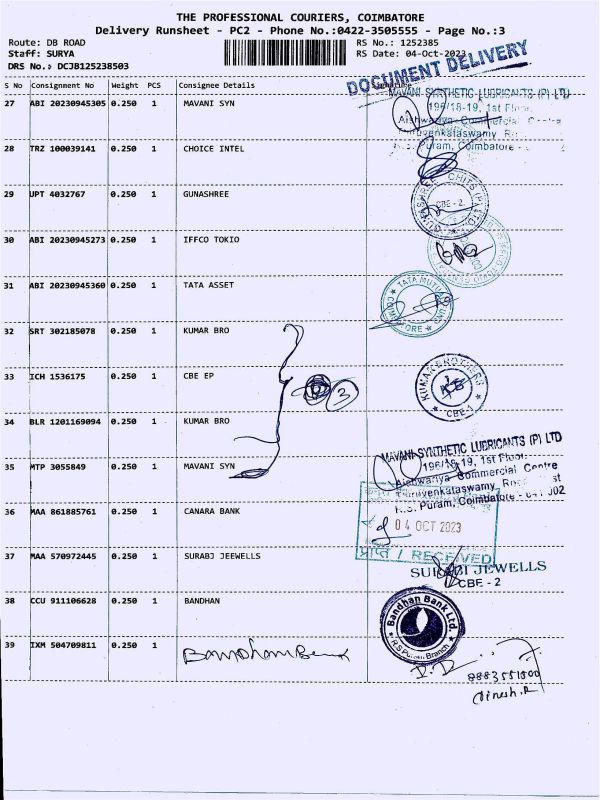 THE PROFESSIONAL COURIERS, COIMBATORE
Delivery Runsheet - PC2 - Phone No.:0422-3505555 - Page No.:3
Route: DB ROAD RS No.: 1252385
Staff: SURYA RS Date: 04-Oct-2023
DRS No.: DCJB125238503
DOCUMENT DELIVERY
S No Consignment No Weight PCS Consignee Details
27 ABI 20230945305 0.250 1 MAVANI SYN
MAVANI SYNTHETIC LUBRICANTS (P) LTD
196/18-19, 1st Floor,
Aishwarya Commercial Centre
R.S. Puram, Coimbatore -
28 TRZ 100039141 0.250 1 CHOICE INTEL
29 UPT 4032767 0.250 1 GUNASHREE
CBE - 2
30 ABI 20230945273 0.250 1 IFFCO TOKIO
31 ABI 20230945360 0.250 1 TATA ASSET
TATA MUTUAL
COIMBATORE
32 SRT 302185078 0.250 1 KUMAR BRO
33 ICH 1536175 0.250 1 CBE EP
3
KUMAR BROTHERS
CBE-1
34 BLR 1201169094 0.250 1 KUMAR BRO
35 MTP 3055849 0.250 1 MAVANI SYN
MAVANI SYNTHETIC LUBRICANTS (P) LTD
196/18-19, 1st Floor,
Aishwarya Commercial Centre
Thiruvenkataswamy Road
R.S. Puram, Coimbatore - 641 002
36 MAA 861885761 0.250 1 CANARA BANK
04 OCT 2023
प्राप्त / RECEIVED
37 MAA 570972445 0.250 1 SURABJ JEEWELLS
SURABI JEWELLS
CBE - 2
38 CCU 911106628 0.250 1 BANDHAN
Bandhan Bank Ltd.
R.S Puram Branch
39 IXM 504709811 0.250 1
Bandhan Bank
Dinesh.R